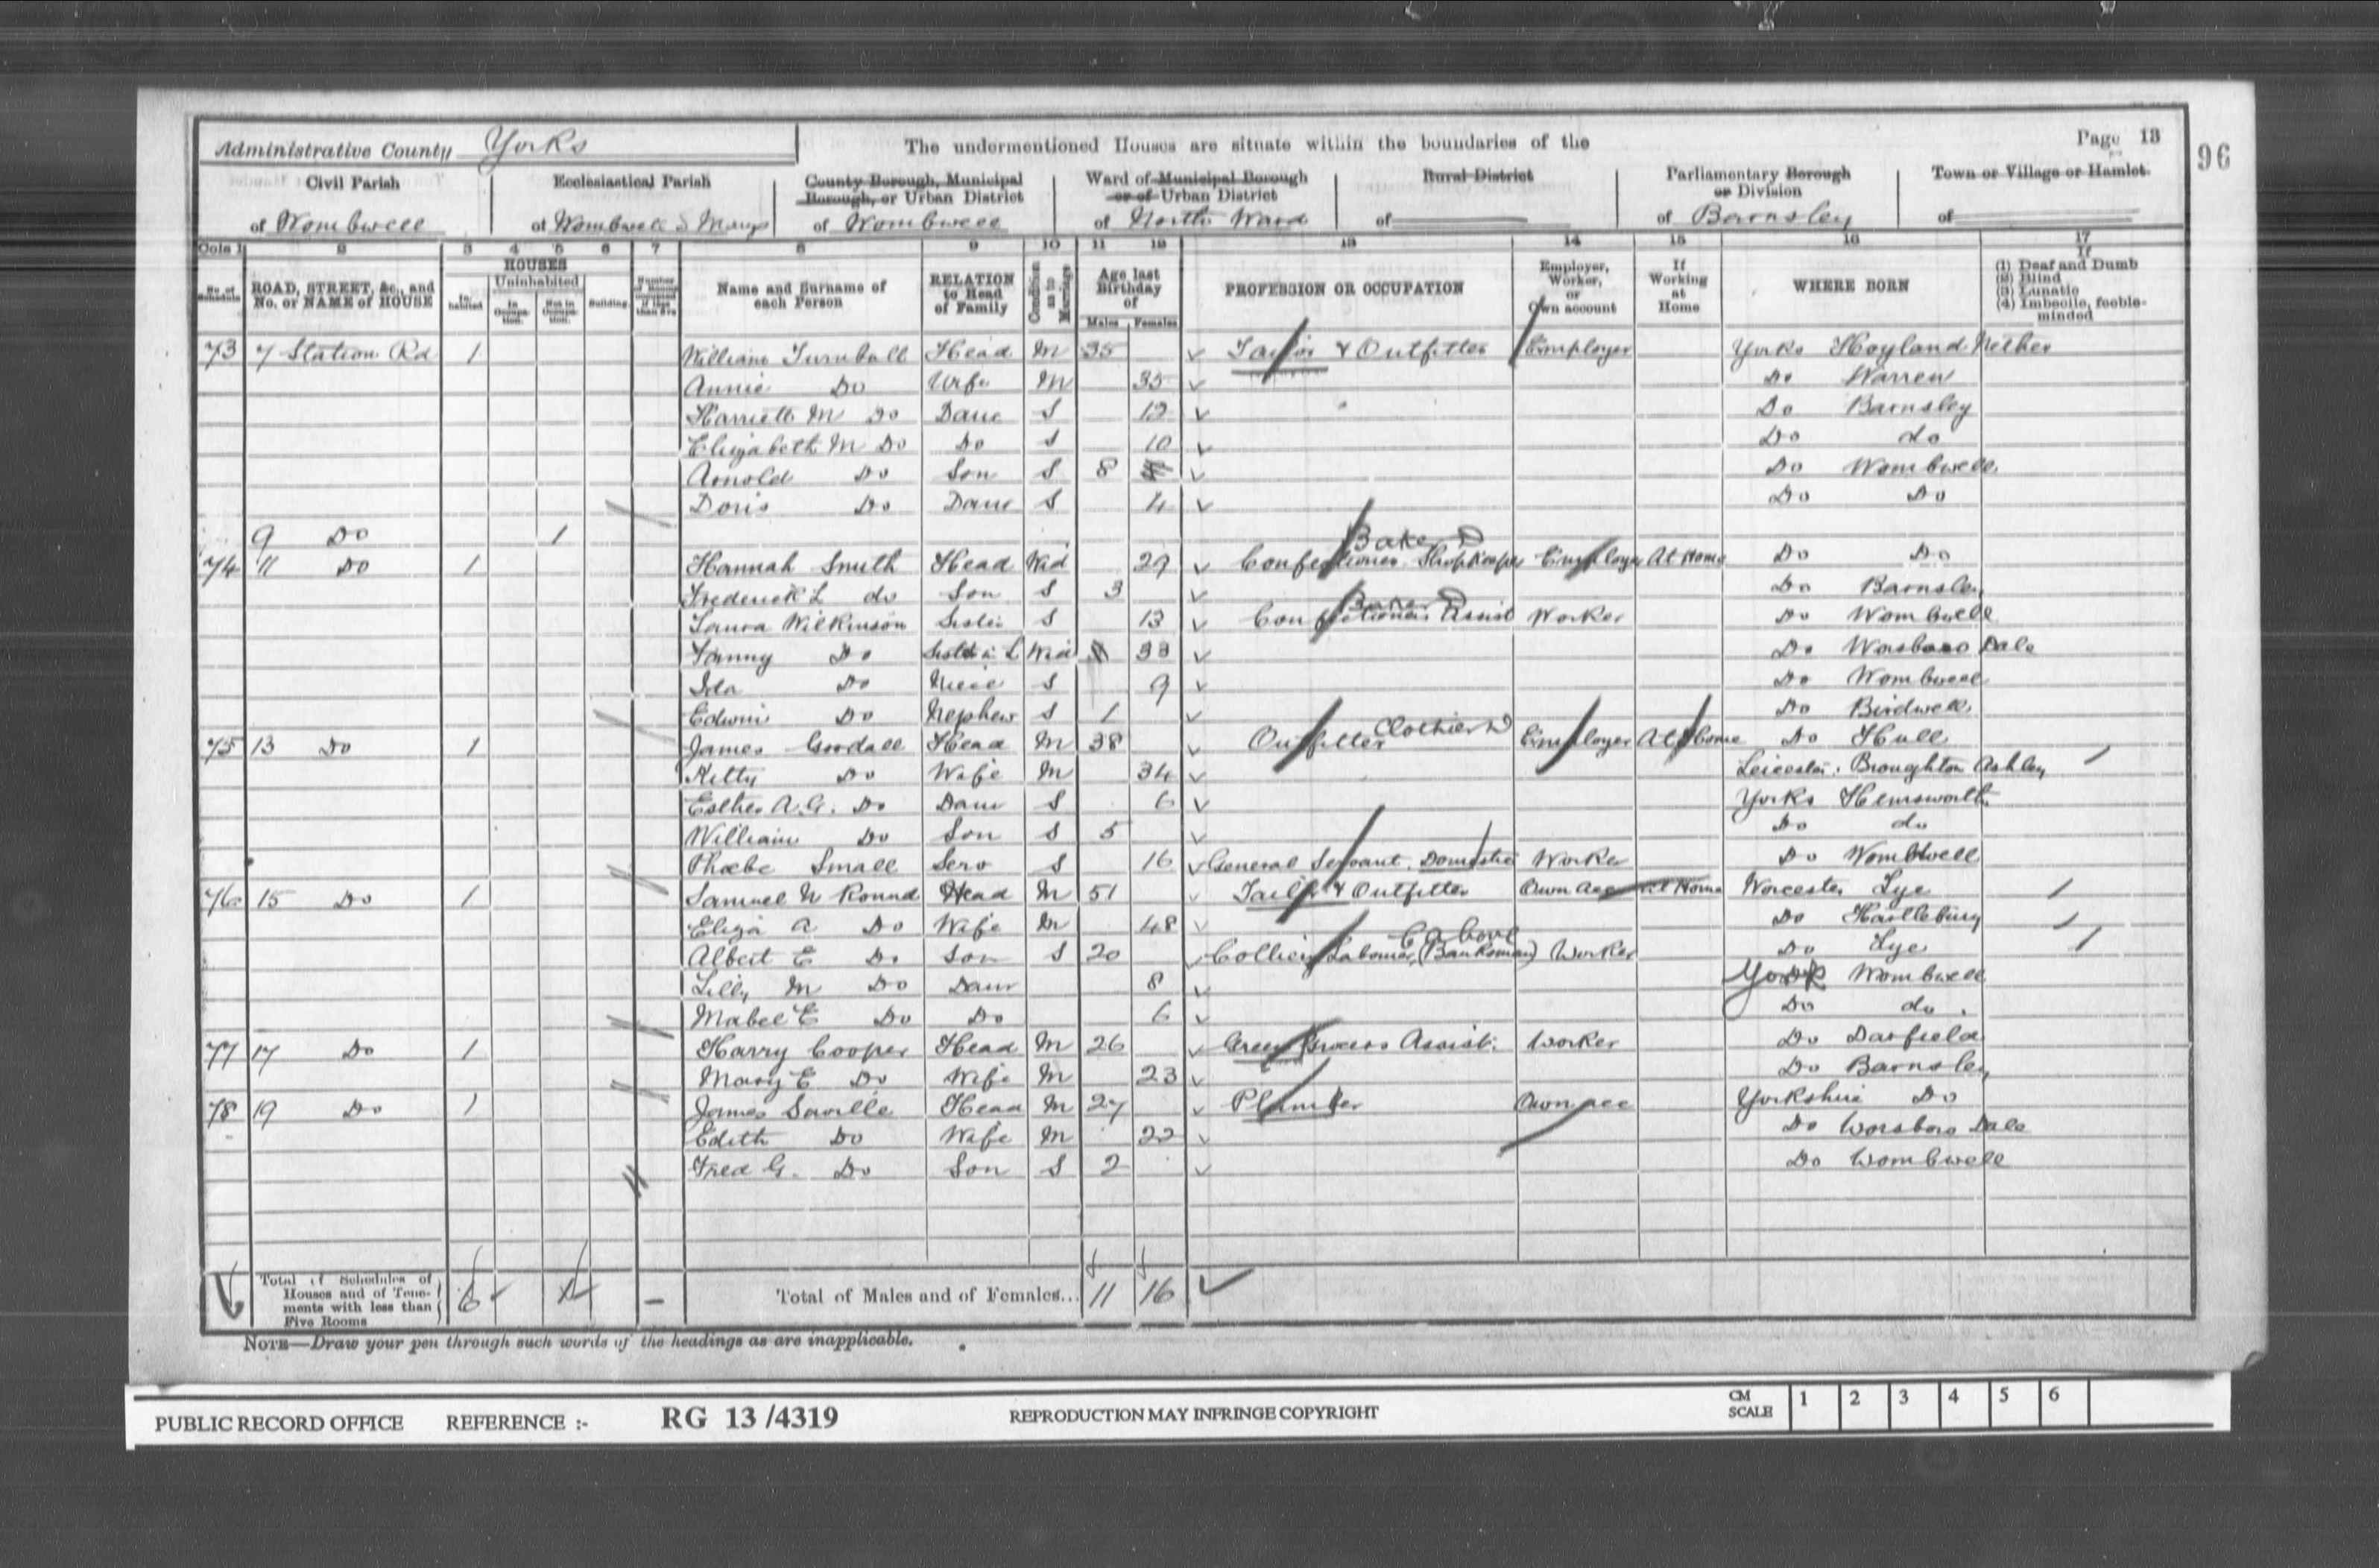 Administrative County Yorks
The undermentioned Houses are situate within the boundaries of the
Page 13
96
Civil Parish of Wombwell
Ecclesiastical Parish of Wombwell S Marys
County Borough, Municipal Borough, or Urban District of Wombwell
Ward of Municipal Borough or of Urban District of North Ward
Rural District of
Parliamentary Borough or Division of Barnsley
Town or Village or Hamlet of
Cols 1 2 3 4 5 6 7 8 9 10 11 12 13 14 15 16 17
No. of Schedule
ROAD, STREET, &c., and No. or NAME of HOUSE
HOUSES
Inhabited
Uninhabited
In Occupation.
Not in Occupation.
Building.
Name and Surname of each Person
RELATION to Head of Family
Condition as to Marriage
Age last Birthday of
Males Females
PROFESSION OR OCCUPATION
Employer, Worker, or Own account
If Working at Home
WHERE BORN
If
(1) Deaf and Dumb
(2) Blind
(3) Lunatic
(4) Imbecile, feeble-minded
73 7 Station Rd 1 William Turnbull Head M 35 Tailor & Outfitter Employer Yorks Hoyland Nether
Annie Do Wife M 35 Do Warren
Harriett M Do Daur S 12 Do Barnsley
Elizabeth M Do Do S 10 Do do
Arnold Do Son S 8 Do Wombwell
Doris Do Daur S 4 Do Do
9 Do 1
Baker
74 11 Do 1 Hannah Smith Head Wid 29 Confectioner Shopkeeper Employer At Home Do Do
Frederick L do Son S 3 Do Barnsley
Baker
Laura Wilkinson Sister S 13 Confectioners Assist Worker Do Wombwell
Fanny Do Sister in L Wid 33 Do Worsboro Dale
Ida Do Niece S 9 Do Wombwell
Edwin Do Nephew S 1 Do Birdwell
Clothier
75 13 Do 1 James Goodall Head M 38 Outfitter Employer At Home Do Hull
Kitty Do Wife M 34 Leicester Broughton Ashley
Esther A.G. Do Daur S 6 Yorks Hemsworth
William Do Son S 5 Do do
Phœbe Small Serv S 16 General Servant Domestic Worker Do Wombwell
76 15 Do 1 Samuel N Round Head M 51 Tailor & Outfitter Own acc At Home Worcester Lye
Eliza A Do Wife M 48 Do Hartlebury
above
Albert E Do Son S 20 Colliery Labourer (Banksman) Worker Do Lye
Lilly M Do Daur 8 York Wombwell
Mabel E Do Do 6 Do do
77 17 Do 1 Harry Cooper Head M 26 Green Grocers Assist. Worker Do Darfield
Mary E Do Wife M 23 Do Barnsley
78 19 Do 1 James Saville Head M 27 Plumber Own acc Yorkshire Do
Edith Do Wife M 22 Do Worsboro Dale
Fred G. Do Son S 2 Do Wombwell
Total of Schedules of Houses and of Tenements with less than Five Rooms 6 –
Total of Males and of Females... 11 16
NOTE—Draw your pen through such words of the headings as are inapplicable.
PUBLIC RECORD OFFICE REFERENCE :- RG 13 /4319 REPRODUCTION MAY INFRINGE COPYRIGHT CM SCALE 1 2 3 4 5 6